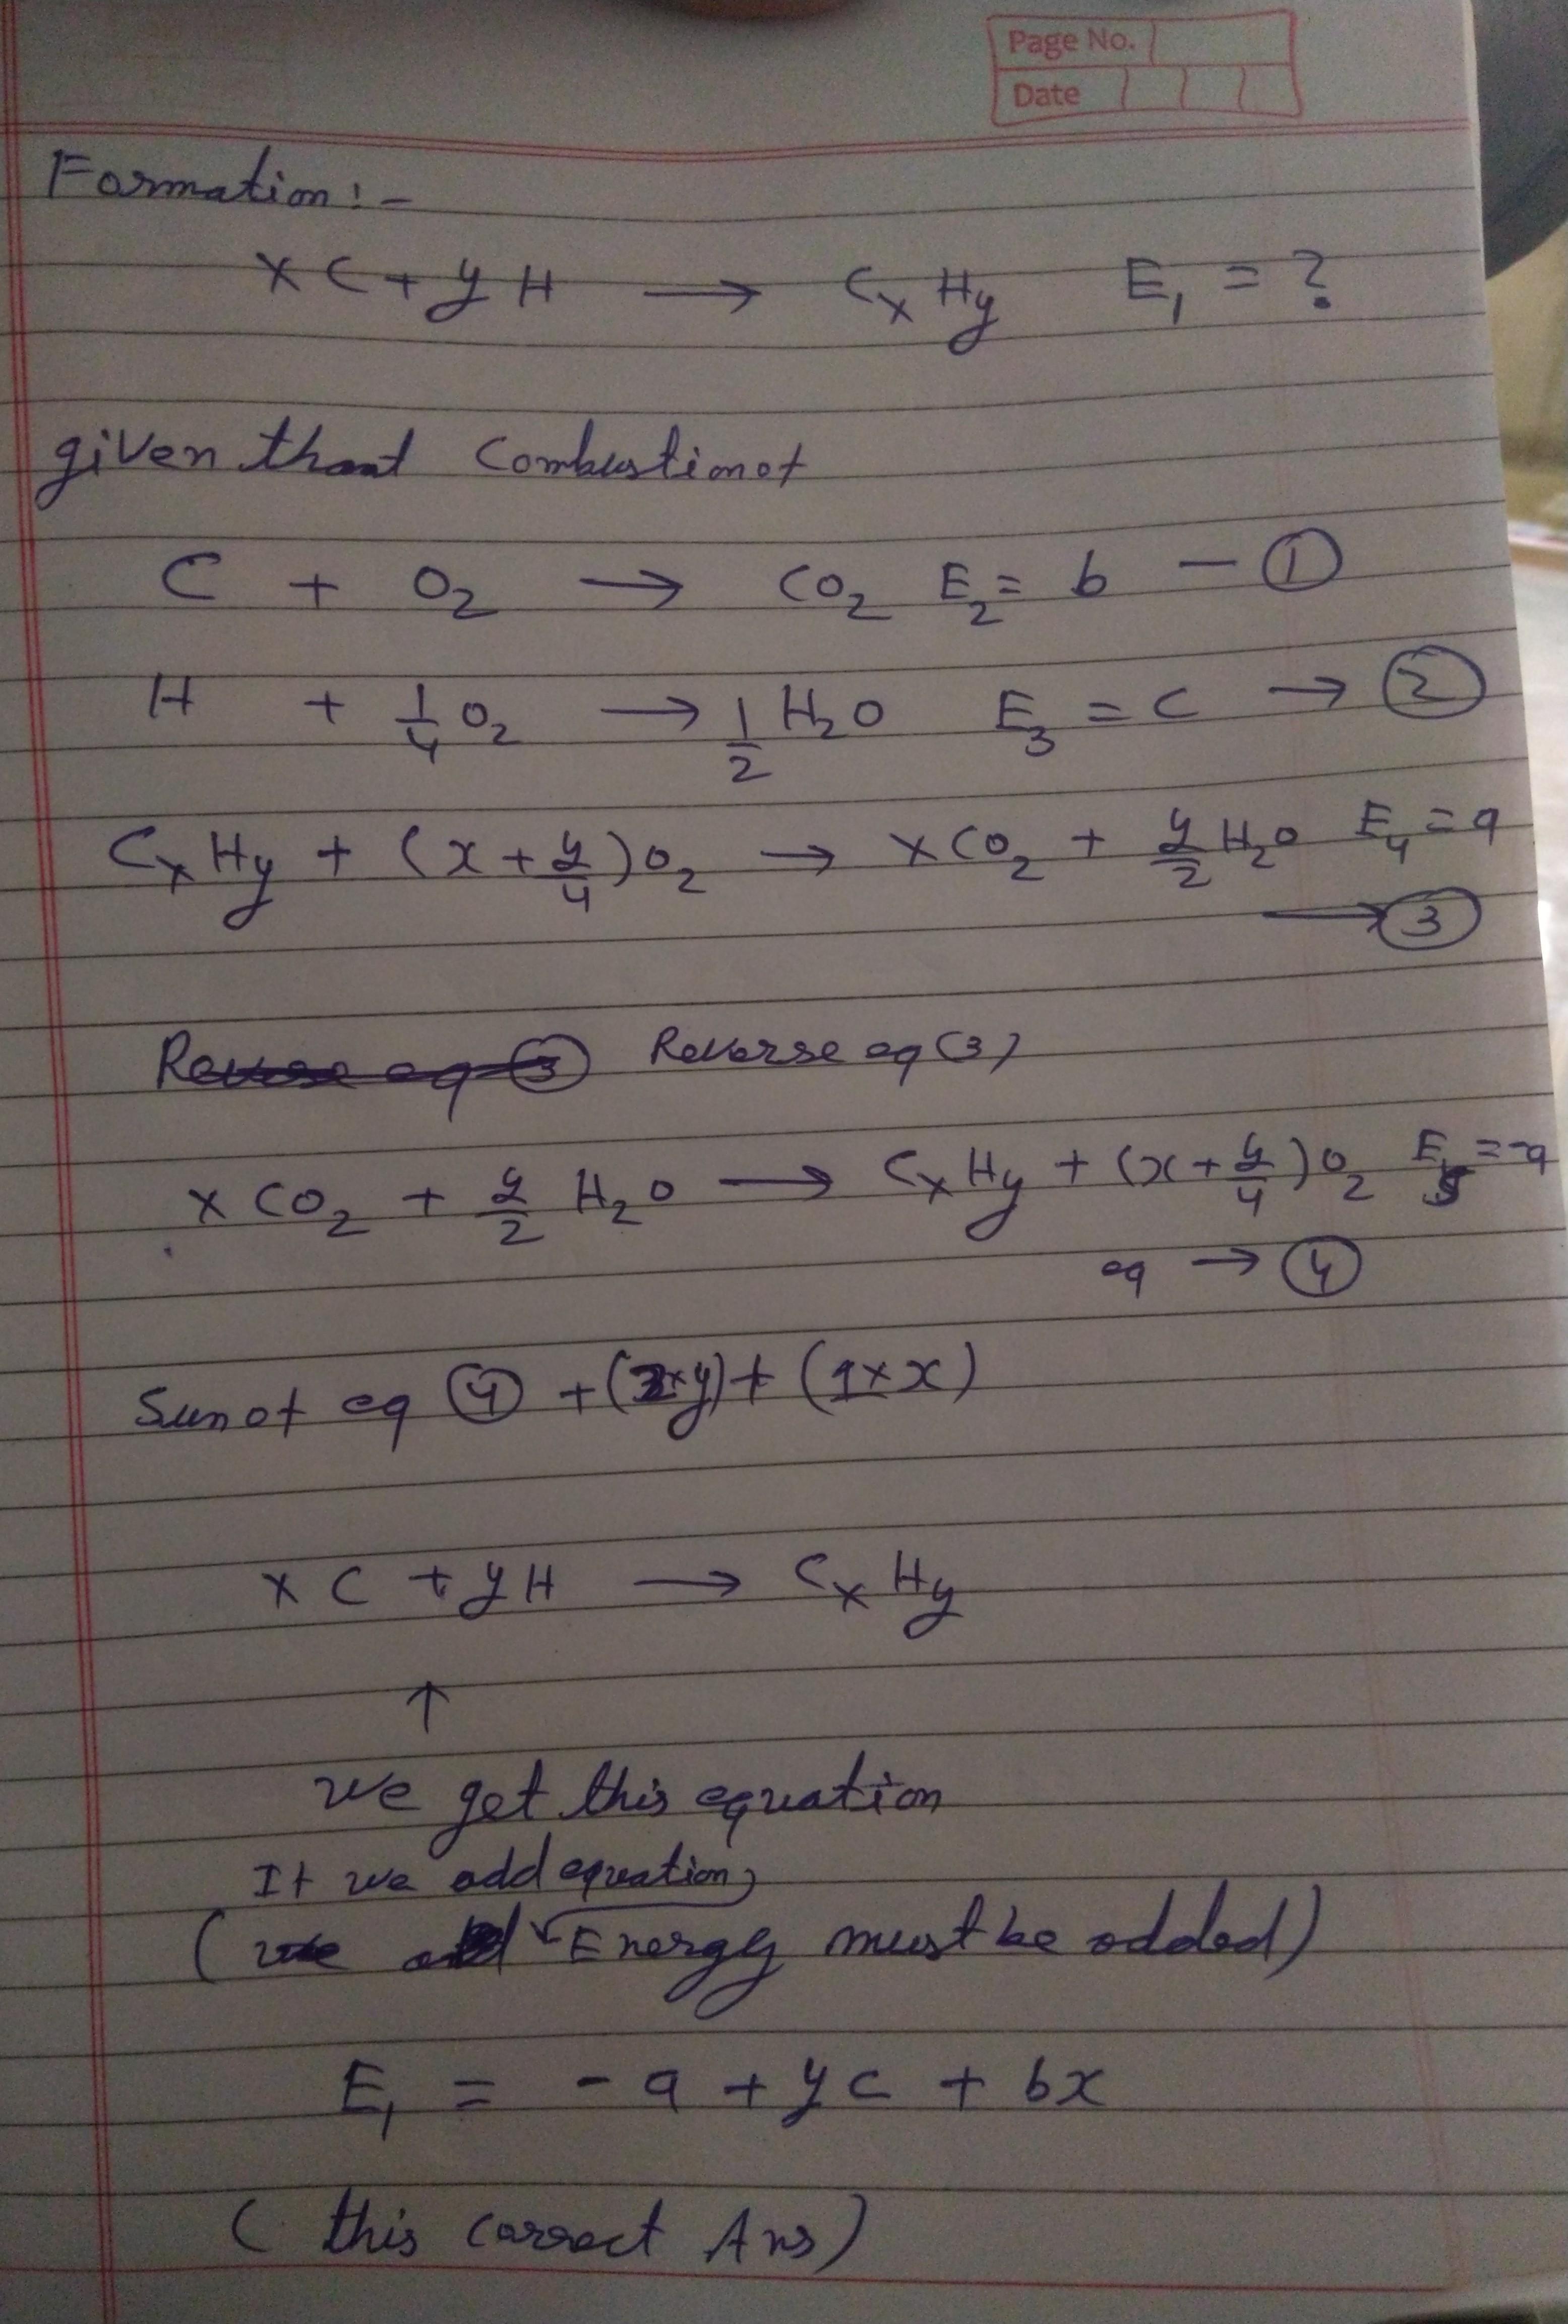 Page No.
Date
Formation:-
x C + y H → CxHy E₁ = ?
given that Combustion of
C + O₂ → CO₂ E₂ = b — ①
H + 1/4 O₂ → 1/2 H₂O E₃ = c → ②
CxHy + (x + y/4) O₂ → x CO₂ + y/2 H₂O E₄ = a
→ ③
Reverse eq ③ Reverse eq (3)
x CO₂ + y/2 H₂O → CxHy + (x + y/4) O₂ E₅ = -a
eq → ④
Sum of eq ④ + (2×y) + (1×x)
x C + y H → CxHy
↑
we get this equation
If we add equation,
( Energy must be added)
E₁ = - a + y c + b x
( this correct Ans)